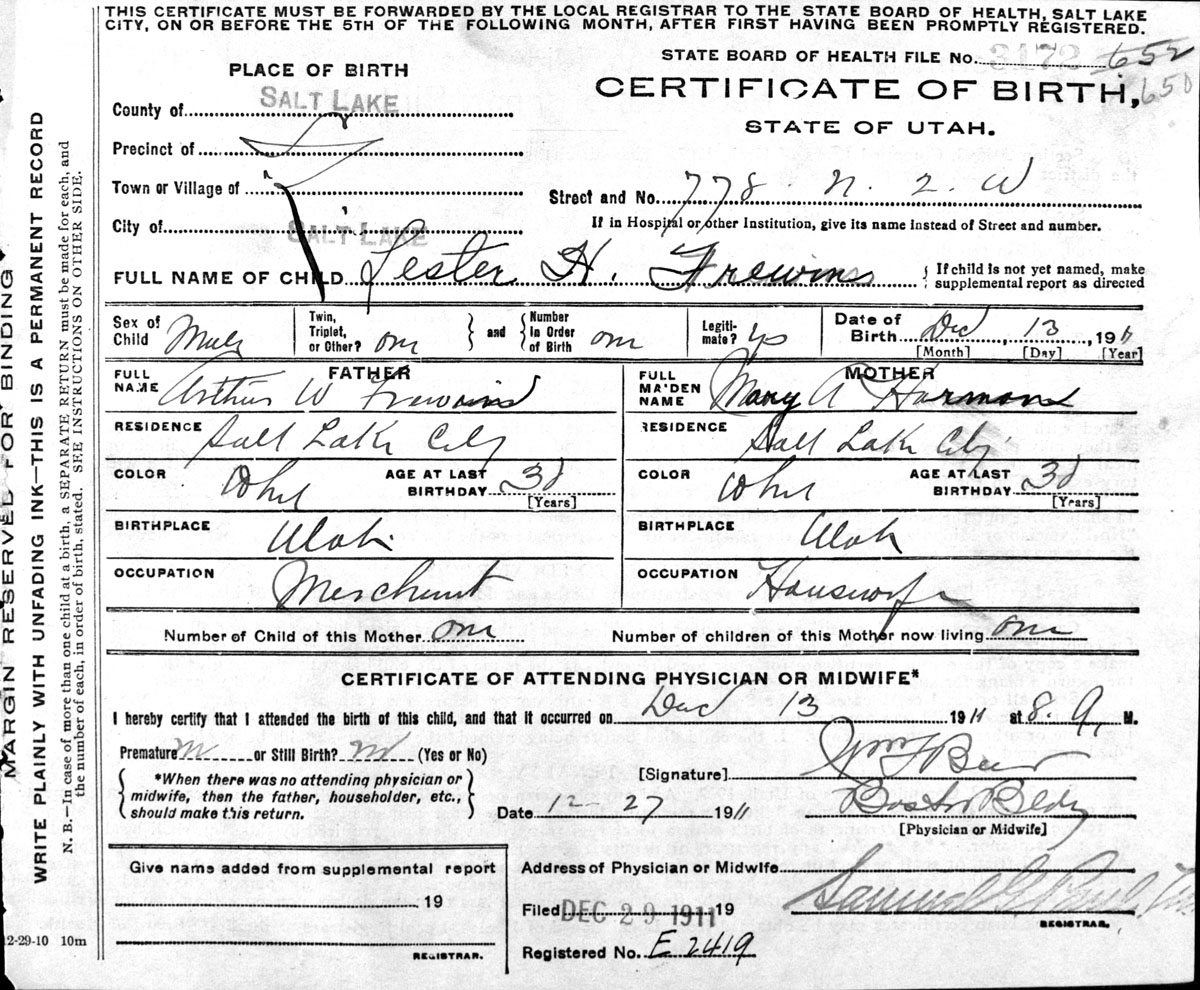 THIS CERTIFICATE MUST BE FORWARDED BY THE LOCAL REGISTRAR TO THE STATE BOARD OF HEALTH, SALT LAKE
CITY, ON OR BEFORE THE 5TH OF THE FOLLOWING MONTH, AFTER FIRST HAVING BEEN PROMPTLY REGISTERED.
STATE BOARD OF HEALTH FILE No. 3172 652
650
PLACE OF BIRTH
CERTIFICATE OF BIRTH,
STATE OF UTAH.
County of SALT LAKE
Precinct of
Town or Village of
Street and No. 778 N. 2 W
City of SALT LAKE
If in Hospital or other Institution, give its name instead of Street and number.
FULL NAME OF CHILD Lester H. Frewins { If child is not yet named, make
supplemental report as directed
Sex of Child Male Twin, Triplet, or Other? one } and { Number in Order of Birth one Legiti-mate? yes Date of Birth Dec 13, 1911
[Month] [Day] [Year]
FATHER MOTHER
FULL NAME Arthur W Frewins FULL MAIDEN NAME Mary A Harmans
RESIDENCE Salt Lake City RESIDENCE Salt Lake City
COLOR Whi AGE AT LAST BIRTHDAY [Years] COLOR Whi AGE AT LAST BIRTHDAY [Years]
BIRTHPLACE Utah BIRTHPLACE Utah
OCCUPATION Merchant OCCUPATION Housewife
Number of Child of this Mother one Number of children of this Mother now living one
CERTIFICATE OF ATTENDING PHYSICIAN OR MIDWIFE*
I hereby certify that I attended the birth of this child, and that it occurred on Dec 13 1911 at 8 A. M.
Premature no or Still Birth? no (Yes or No)
{ *When there was no attending physician or
midwife, then the father, householder, etc.,
should make this return. }
[Signature] Wm F Beer
Date 12-27 1911 Boston Bldg
[Physician or Midwife]
Give name added from supplemental report
19
REGISTRAR.
Address of Physician or Midwife
Filed DEC 29 1911 19 Samuel G. Paul
REGISTRAR.
Registered No. E 2419
12-29-10 10m
MARGIN RESERVED FOR BINDING
WRITE PLAINLY WITH UNFADING INK—THIS IS A PERMANENT RECORD
N. B.—In case of more than one child at a birth, a SEPARATE RETURN must be made for each, and
the number of each, in order of birth, stated. SEE INSTRUCTIONS ON OTHER SIDE.